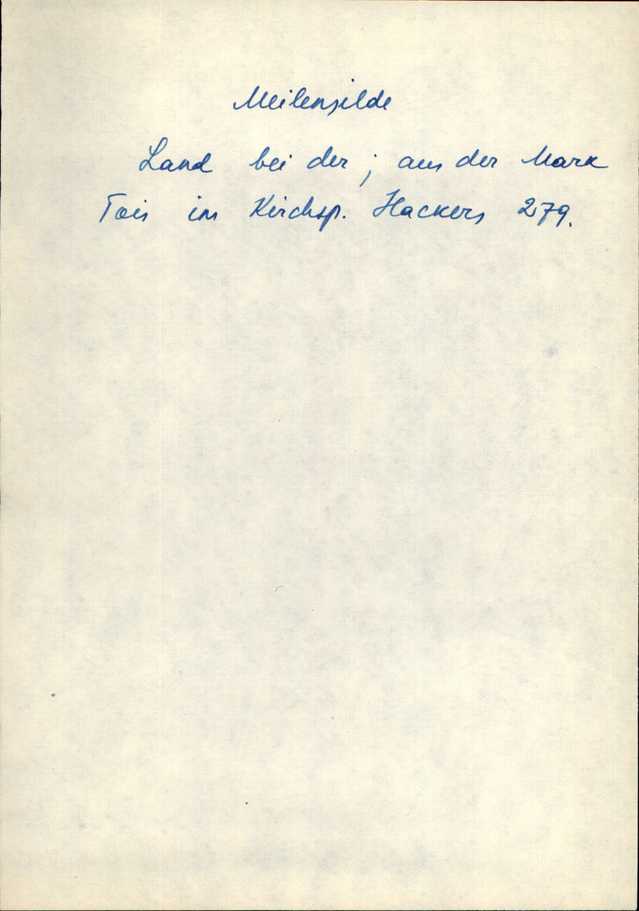 Meilengilde
Land bei der; aus der Mark
Tois im Kirchsp. Hackers 279.